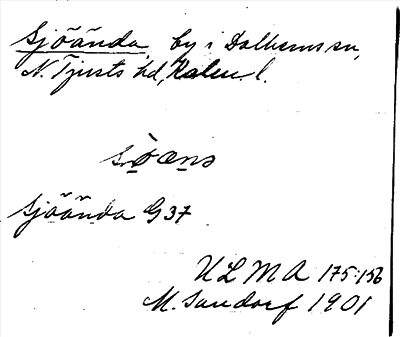 Sjöända, by i Dalhems sn,
N. Tjusts hd, Kalm l.
Sjöända G 37
ULMA 175:156
M. Sandorf 1901